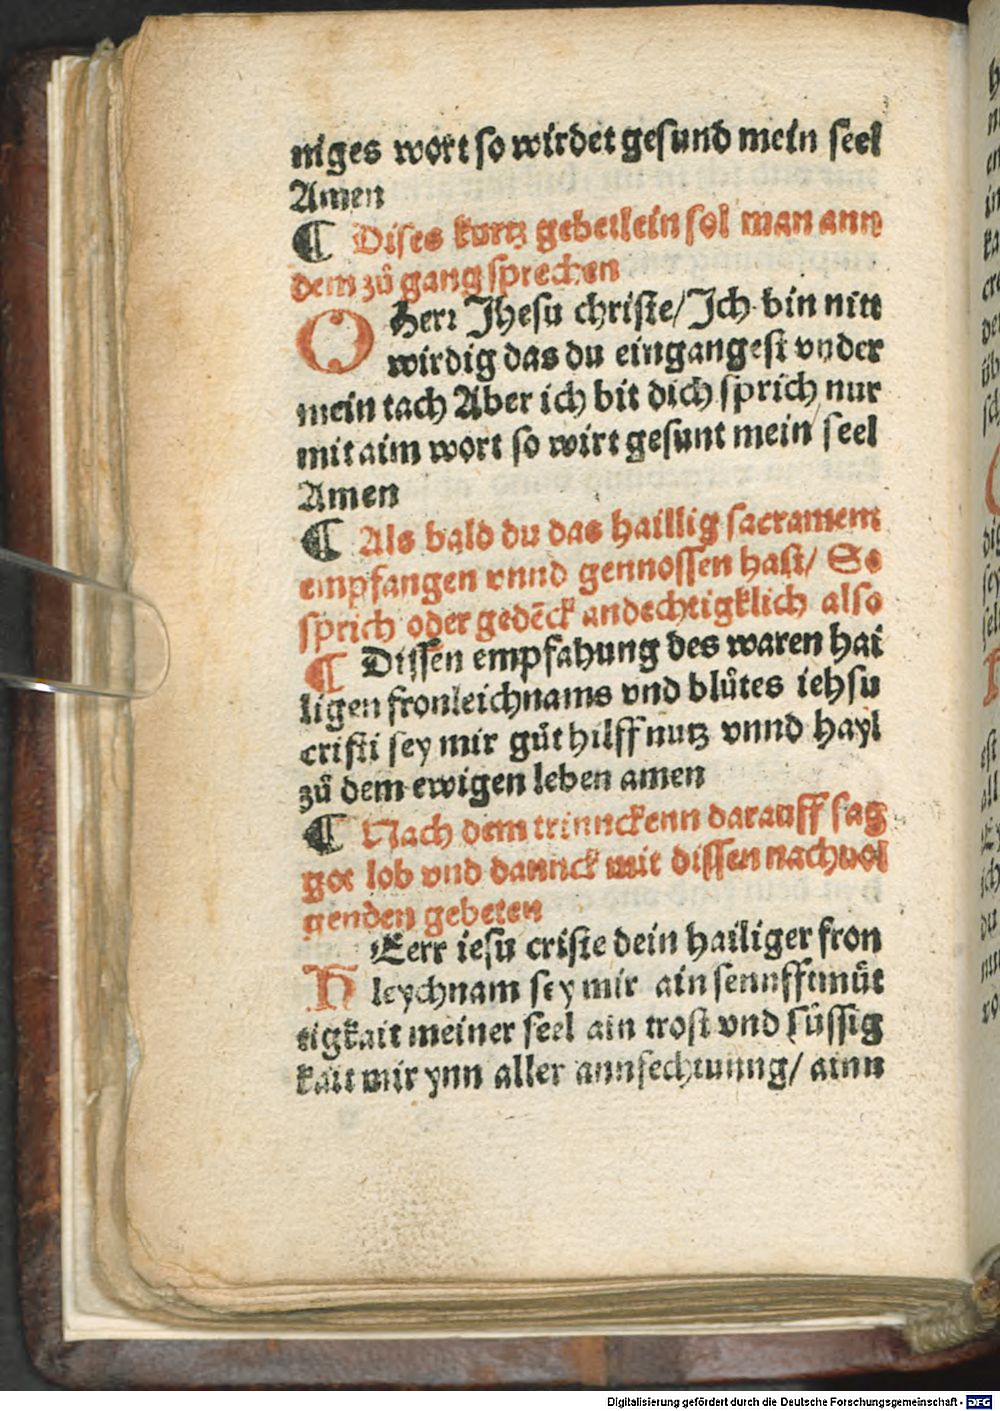 niges wort so wirdet gesund mein seel
Amen
¶ Dises kurtz gebetlein sol man ann
dem zů gang sprechen
O Herr Jhesu christe/ Jch bin nitt
wirdig das du eingangest vnder
mein tach Aber ich bit dich sprich nur
mit aim wort so wirt gesunt mein seel
Amen
¶ Als bald du das haillig sacrament
empfangen vnnd gennossen hast/ So
sprich oder gedēck andechtigklich also
¶ Dissen empfahung des waren hai
ligen fronleichnams vnd blůtes iehsu
cristi sey mir gůt hilff nutz vnnd hayl
zů dem ewigen leben amen
¶ Nach dem trinnckenn darauff sag
got lob vnd dannck mit dissen nachuol
genden gebeten
H Herr iesu criste dein hailiger fron
leychnam sey mir ain sennfftmůt
tigkait meiner seel ain trost vnd süssig
kait mir ynn aller annfechtunng/ ainn
Digitalisierung gefördert durch die Deutsche Forschungsgemeinschaft - DFG